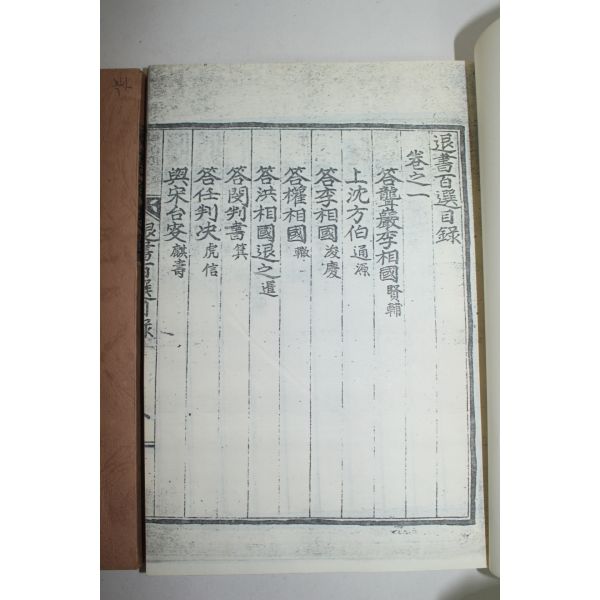 退書百選目録
卷之一
答聾巖李相國賢輔
上沈方伯通源
答李相國浚慶
答權相國轍
答洪相國退之暹
答閔判書箕
答任判决虎信
與宋台叟麒壽
退書百選目録